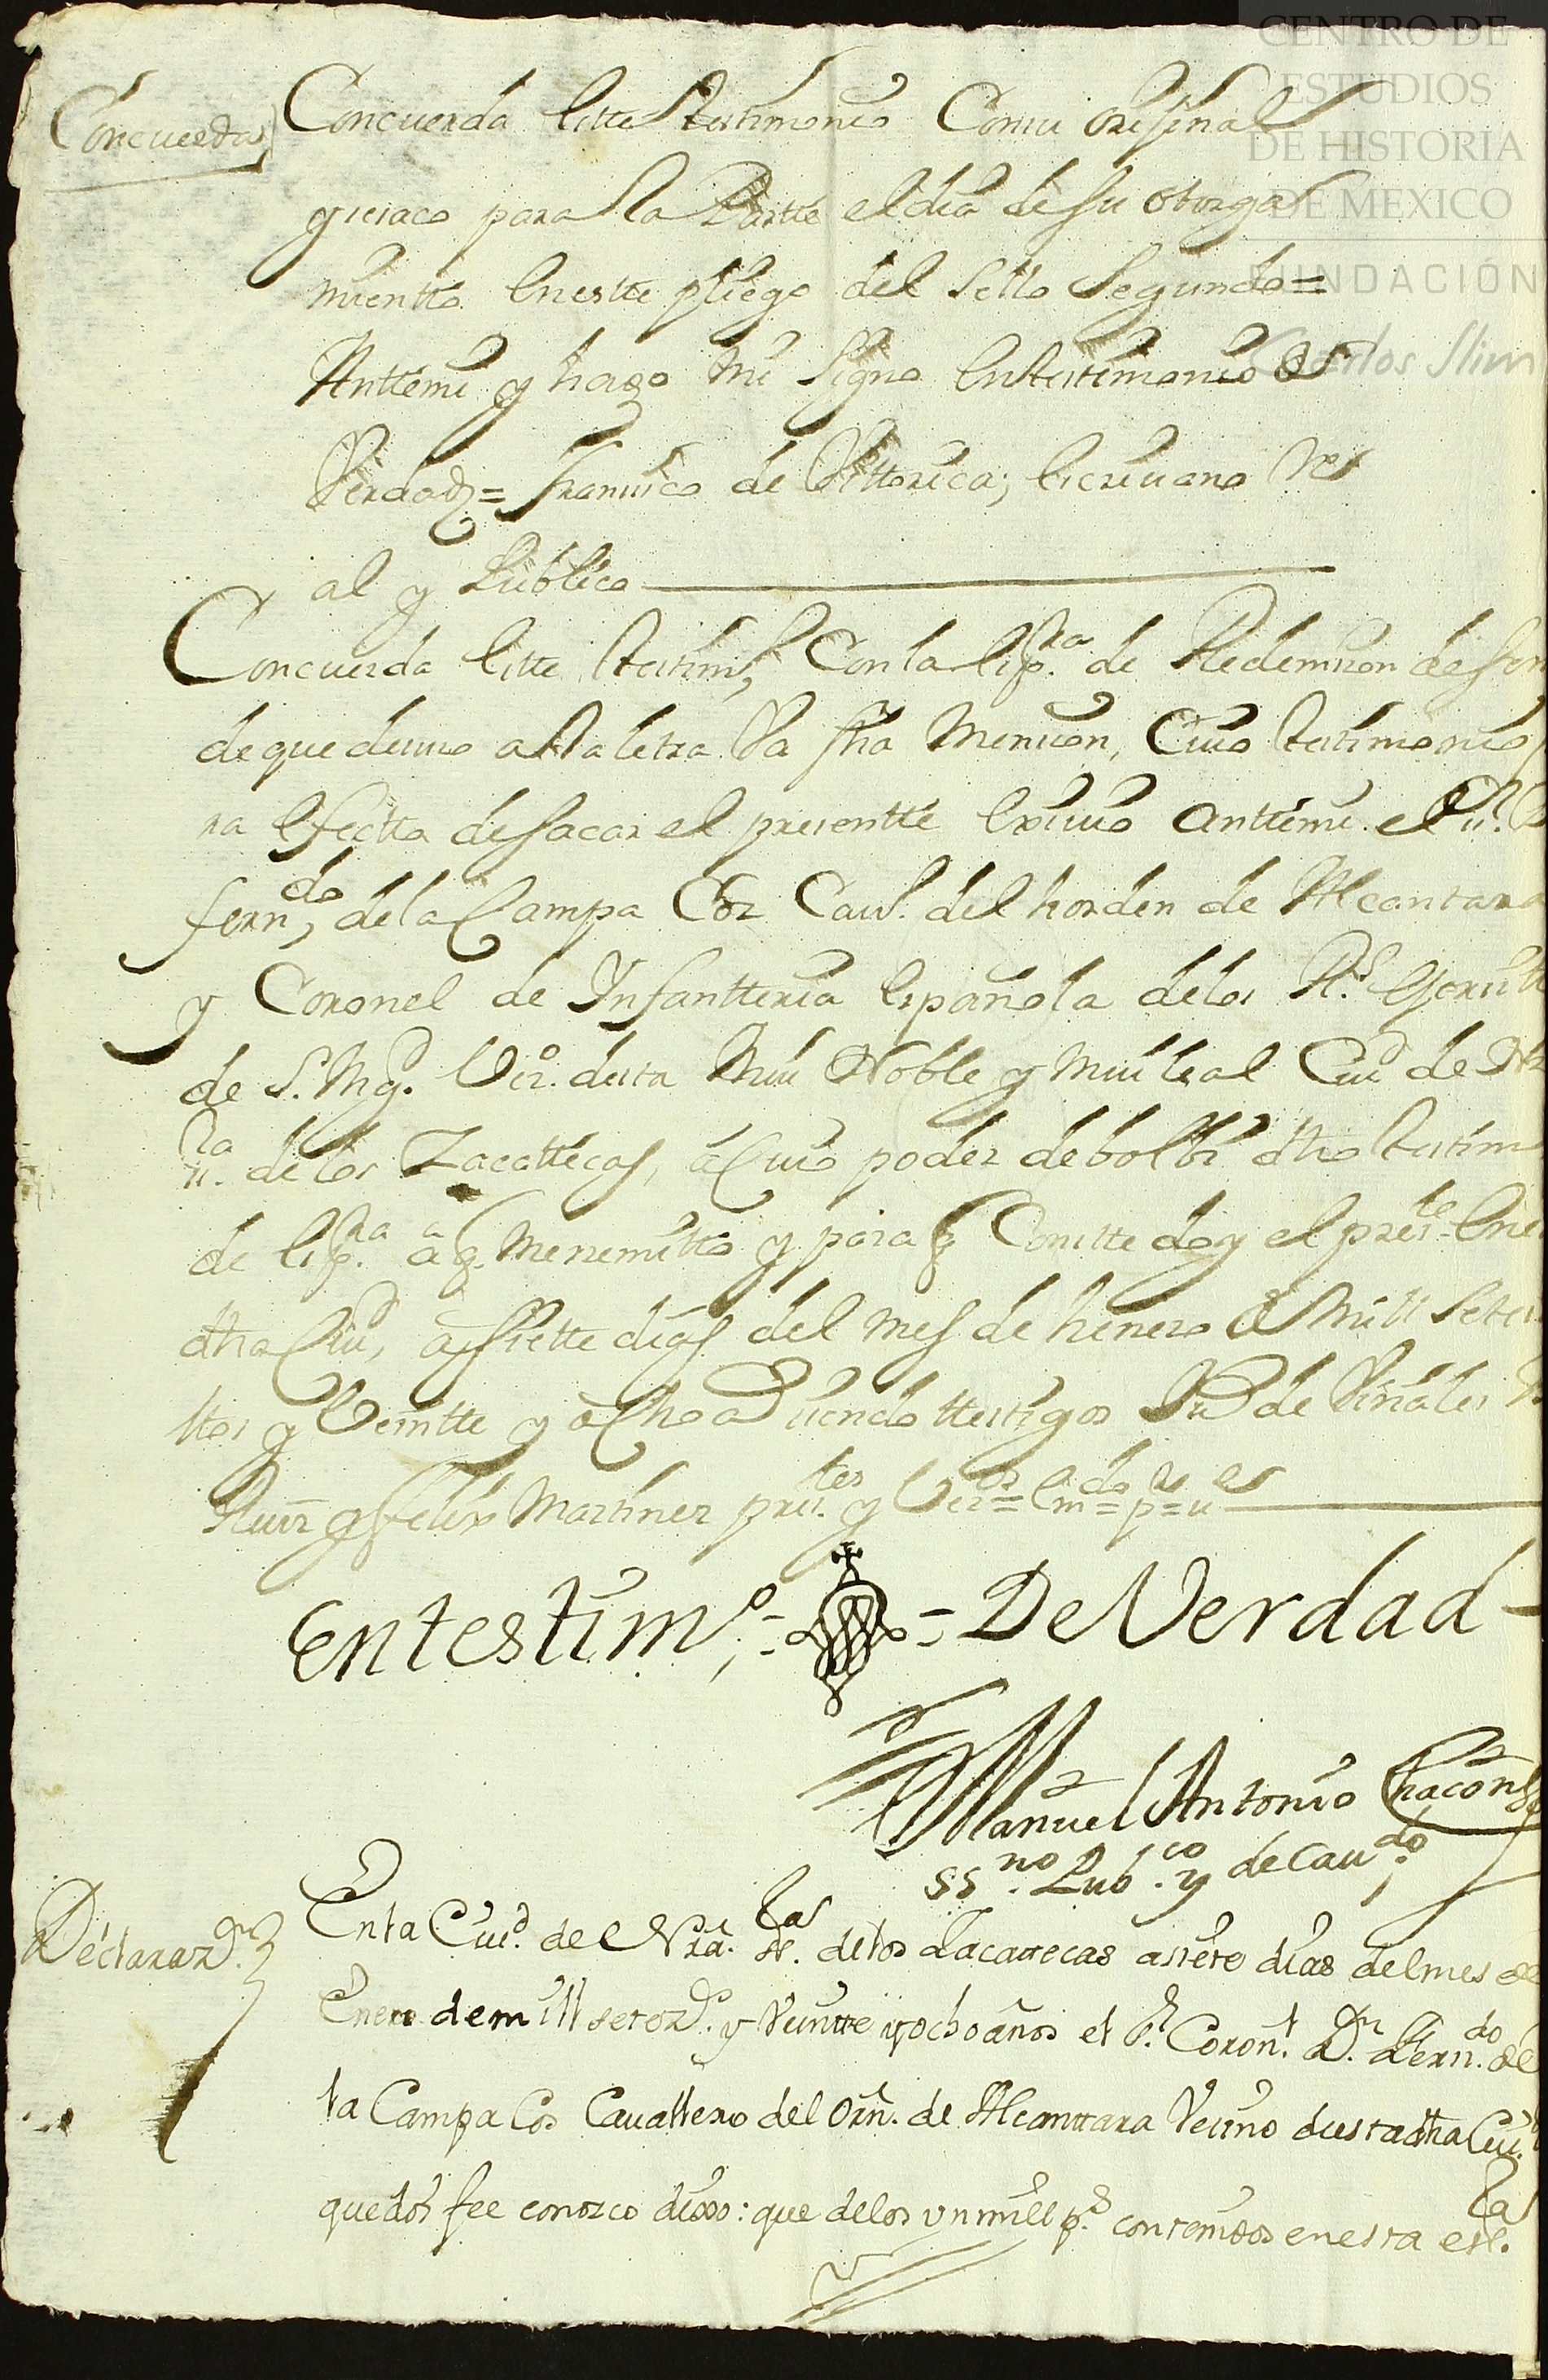 CENTRO DE
ESTUDIOS
DE HISTORIA
DE MEXICO
FUNDACIÓN
Carlos Slim
Concuerda
Concuerda este testimonio Consu original
que saco para la Partte el dia de su otorga
miento enestte pliego del sello Segundo =
Anttemi y hago mi signo entestimonio de
Verdad = Francisco de Vittorica; escriuano Re
al y Publico
Concuerda estte testimo Con la escra de Redempcion desenso
de que deuuso a la letra Va fha Mencion, Cuio testimonio p
ra efectto de sacar el presentte exiuio anttemi el Sr
ferndo de la Campa Coz Cauo. del horden de Alcantara
y Coronel de Ynfantteria española de los Rs. exercit
de S. Mgd. Vezo. desta mui Noble y mui leal Ciud de Na
Sra de los Zacattecas, á Cuio poder debolbi dho testimo
de escra a q. me remitto y para q Constte doy el preste enes
dha Ciud, a siette dias del mes de henero de mill setes
ttos y Veintte y ocho as siendo testigos Ju de Viñales
Ruiz y felix Martinez prestes y Vezos = emdo = p = u =
En testimo = = De Verdad
Manuel Antonio Chacon
ssno. Pubco. y de Caudo
Declarazon.
En la Ciud. de Nra. Sra. de los Zacattecas a siete dias del mes de
Enero de mill setezos. y Veintte y ocho años el Sr. Coronl. Dn. Ferndo. de
la Campa Cos Cauallero del Orn. de Alcanttara Vecino de esta dha Ciud.
que doi fee conozco dixo: que de los vn mill ps. contenidos en esta escra.